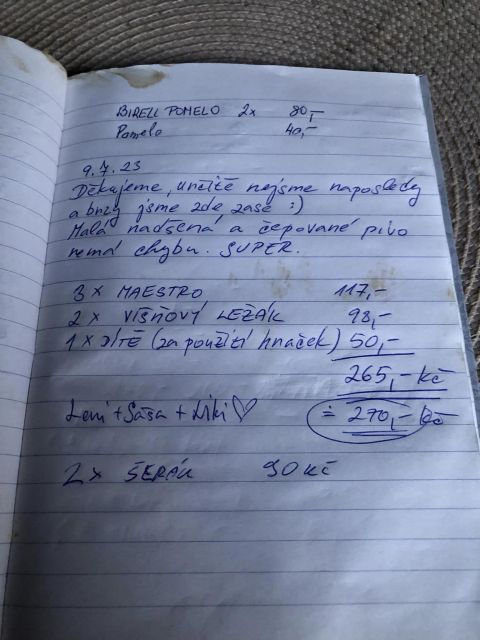 BIRELL POMELO 2x 80,-
Pomelo 40,-
9.7.23
Děkujeme, určitě nejsme naposledy
a brzy jsme zde zase :)
Malá nadšená a čepované pivo
nemá chybu. SUPER.
3 x MAESTRO 117,-
2 x VIŠŇOVÝ LEŽÁK 98,-
1 x DÍTĚ (za použití hraček) 50,-
265,- Kč
Leni + Sáša + Liki ♡ = 270,- Kč
2 x ŠERÁK 90 Kč